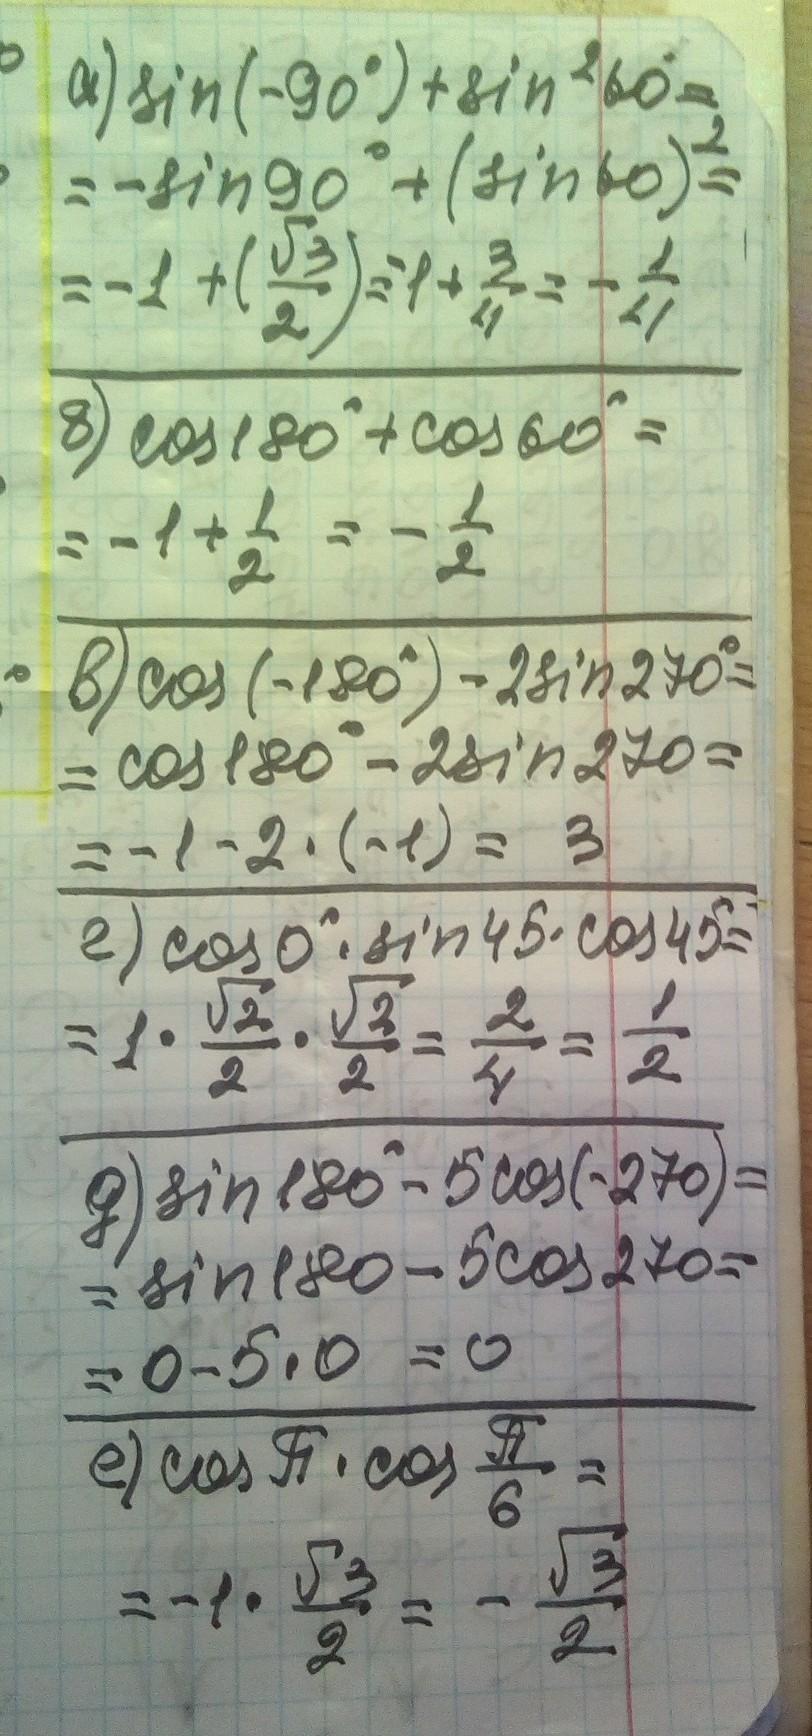 а) sin(-90°) + sin²60° =
= -sin90° + (sin60)² =
= -1 + (√3/2) = -1 + 3/4 = -1/4
б) cos180° + cos60° =
= -1 + 1/2 = -1/2
в) cos(-180°) - 2sin270° =
= cos180° - 2sin270 =
= -1 - 2·(-1) = 3
г) cos0°·sin45·cos45° =
= 1·√2/2·√2/2 = 2/4 = 1/2
д) sin180° - 5cos(-270) =
= sin180 - 5cos270 =
= 0 - 5·0 = 0
е) cosπ·cos π/6 =
= -1·√3/2 = -√3/2